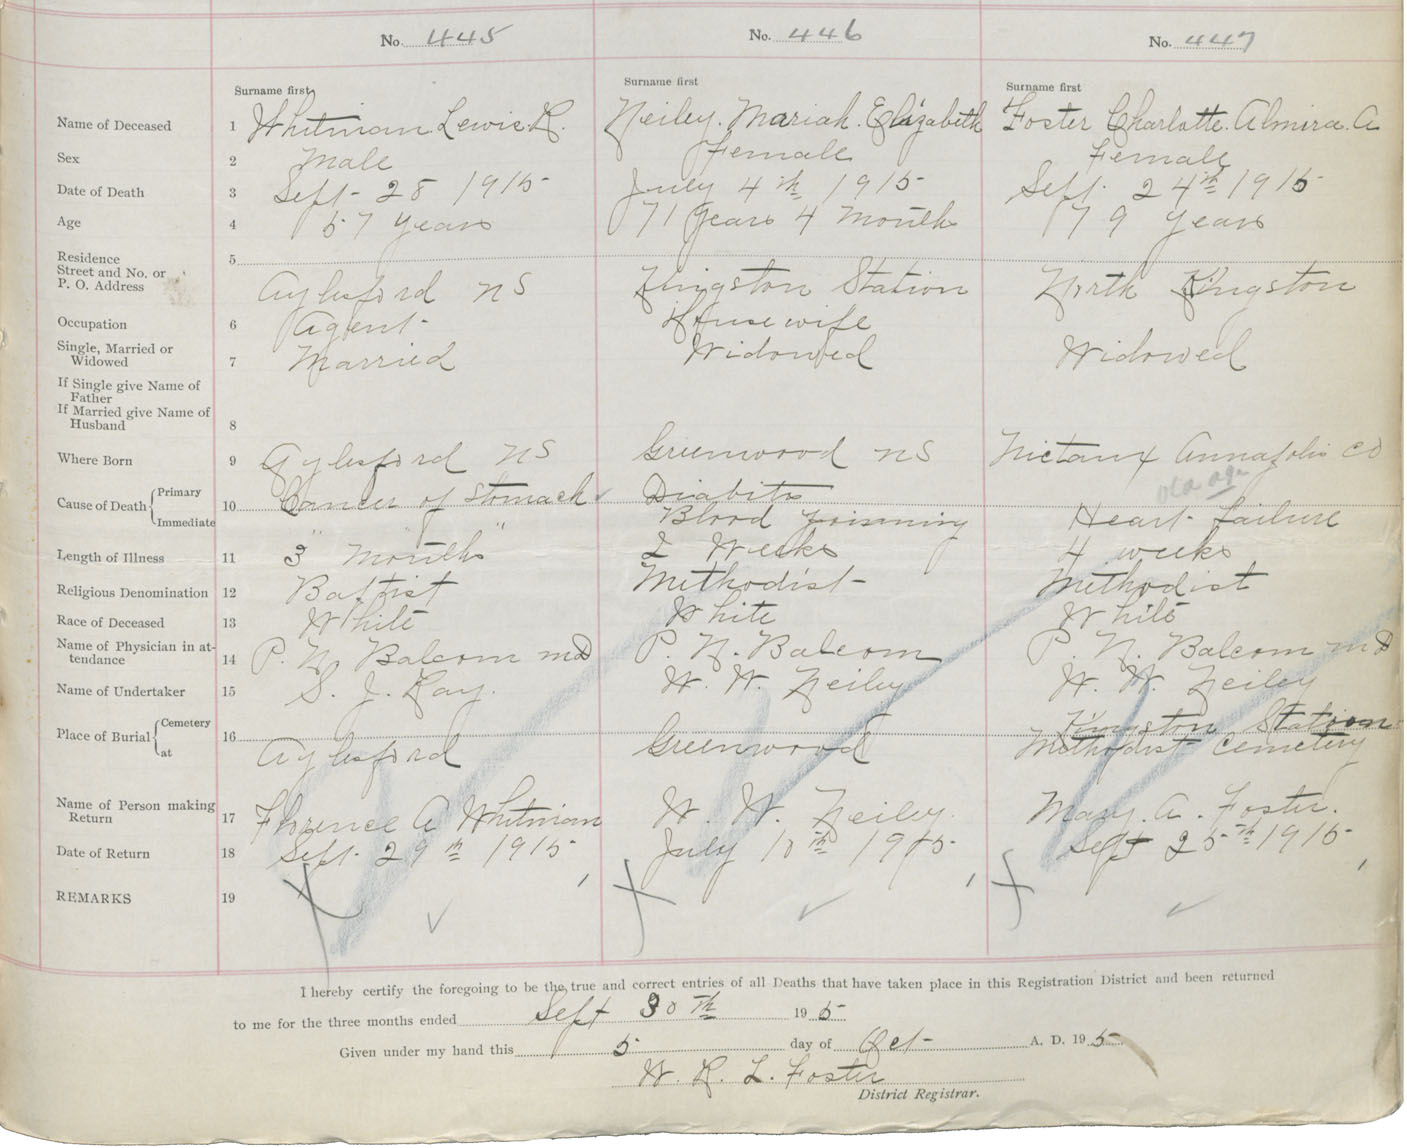 No. 445 No. 446 No. 447
Surname first Surname first Surname first
Name of Deceased 1 Whitman Lewis R. Neiley. Mariah. Elizabeth Foster Charlotte. Almira. A
Sex 2 Male Female Female
Date of Death 3 Sept- 28 1915- July 4th 1915- Sept. 24th 1915
Age 4 57 years 71 years 4 month 79 years
Residence 5
Street and No. or
P. O. Address Aylesford NS Kingston Station North Kingston
Occupation 6 Agent- Housewife
Single, Married or
Widowed 7 Married Widowed Widowed
If Single give Name of
Father
If Married give Name of
Husband 8
Where Born 9 Aylesford NS Greenwood NS Nictaux Annapolis Co
Cause of Death Primary 10 Cancer of Stomach Diabits old age
Immediate " " " Blood poisoning Heart- failure
Length of Illness 11 3 months 2 Weeks 4 weeks
Religious Denomination 12 Baptist Methodist- Methodist
Race of Deceased 13 White White White
Name of Physician in at-
tendance 14 P. N. Balcom MD P. N. Balcom P. N. Balcom MD
Name of Undertaker 15 S. J. Ray. W. W. Neiley W. W. Neiley
Place of Burial Cemetery 16 Kingston Station
at Aylesford Greenwood Methodist Cemetery
Name of Person making
Return 17 Florence A Whitman W. W. Neiley. Mary. A. Foster.
Date of Return 18 Sept. 29th 1915- July 10th 1915- Sept 25th 1915-
REMARKS 19
I hereby certify the foregoing to be the true and correct entries of all Deaths that have taken place in this Registration District and been returned
to me for the three months ended Sept 30th 19 5-
Given under my hand this 5 day of Oct- A. D. 19 5
W. R. L. Foster
District Registrar.